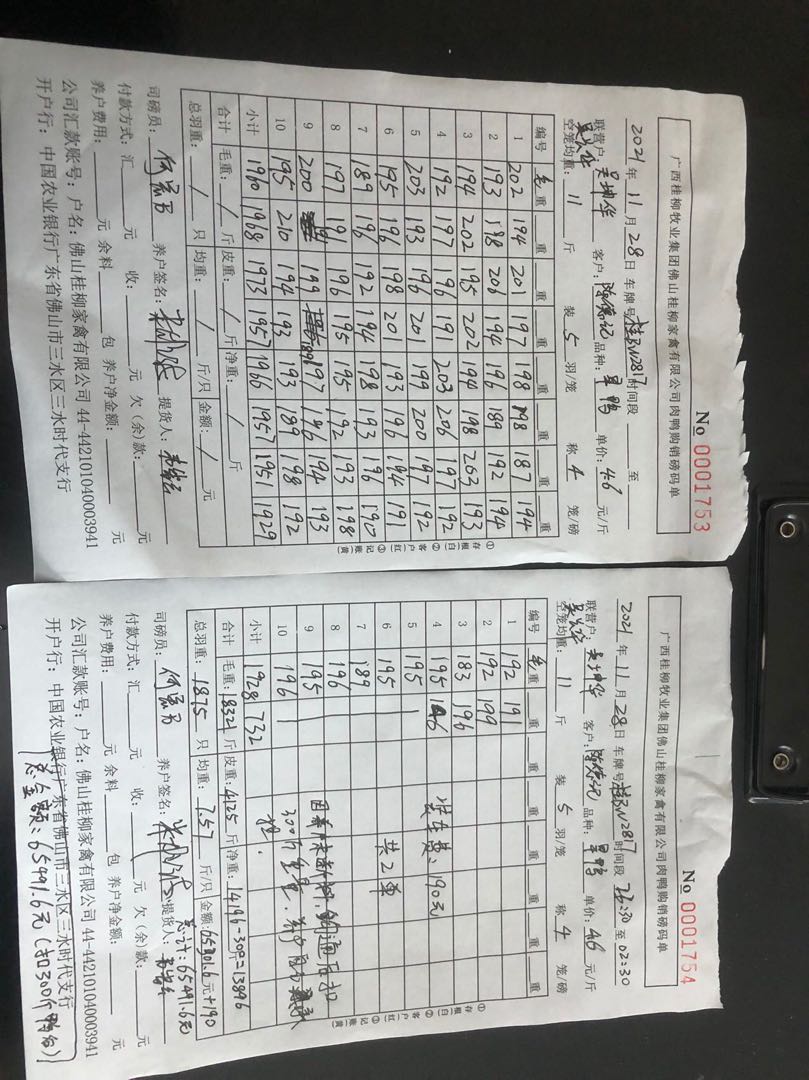 广西桂柳牧业集团佛山桂柳家禽有限公司肉鸭购销磅码单
No 0001753
2021年11月28日 车牌号: 时间段 至
联营户: 客户: 品种: 单价: 4.6 元/斤
空笼均重: 11 斤 装 5 羽/笼 称 4 笼/磅
编号 毛重 重 重 重 重 重 重 重
1 202 194 201 197 198 198 187 194
2 193 198 206 194 196 189 192 194
3 194 202 195 202 194 198 203 193
4 192 197 196 191 203 206 197 192
5 203 193 196 201 199 200 197 192
6 195 196 198 201 193 196 194 191
7 189 196 192 194 198 193 196 190
8 197 191 196 195 195 192 193 198
9 200 191 199 189 197 196 194 193
10 195 210 194 193 193 189 198 192
小计 1960 1968 1973 1957 1966 1957 1951 1929
合计 毛重: / 斤 皮重: / 斤 净重: / 斤
总羽重: / 只 均重: / 斤/只 金额: / 元
①存根(白) ②客户(红) ③记账(黄)
司磅员: 养户签名: 提货人:
付款方式: 汇 元 收: 元 欠(余)款: 元
养户费用: 元 余料 包 养户净金额: 元
公司汇款账号: 户名: 佛山桂柳家禽有限公司 44-442101040003941
开户行: 中国农业银行广东省佛山市三水区三水时代支行
广西桂柳牧业集团佛山桂柳家禽有限公司肉鸭购销磅码单
No 0001754
2021年11月28日 车牌号: 时间段 至 02:30
联营户: 客户: 品种: 单价: 4.6 元/斤
空笼均重: 11 斤 装 5 羽/笼 称 4 笼/磅
编号 毛重 重 重 重 重 重 重 重
1 192 191
2 192 199
3 183 196
4 195 146 装车费: 190元
5 195
6 195 共2单
7 189
8 196
9 195
10 196
小计 1928 732
合计 毛重: 18321 斤 皮重: 4125 斤 净重: 14196-300=13896
总羽重: 1875 只 均重: 7.57 斤/只 金额: 元+190
①存根(白) ②客户(红) ③记账(黄)
共计: 65491.6元
司磅员: 养户签名: 提货人:
付款方式: 汇 元 收: 元 欠(余)款: 元
养户费用: 元 余料 包 养户净金额: 元
公司汇款账号: 户名: 佛山桂柳家禽有限公司 44-442101040003941
开户行: 中国农业银行广东省佛山市三水区三水时代支行
总金额: 65491.6元